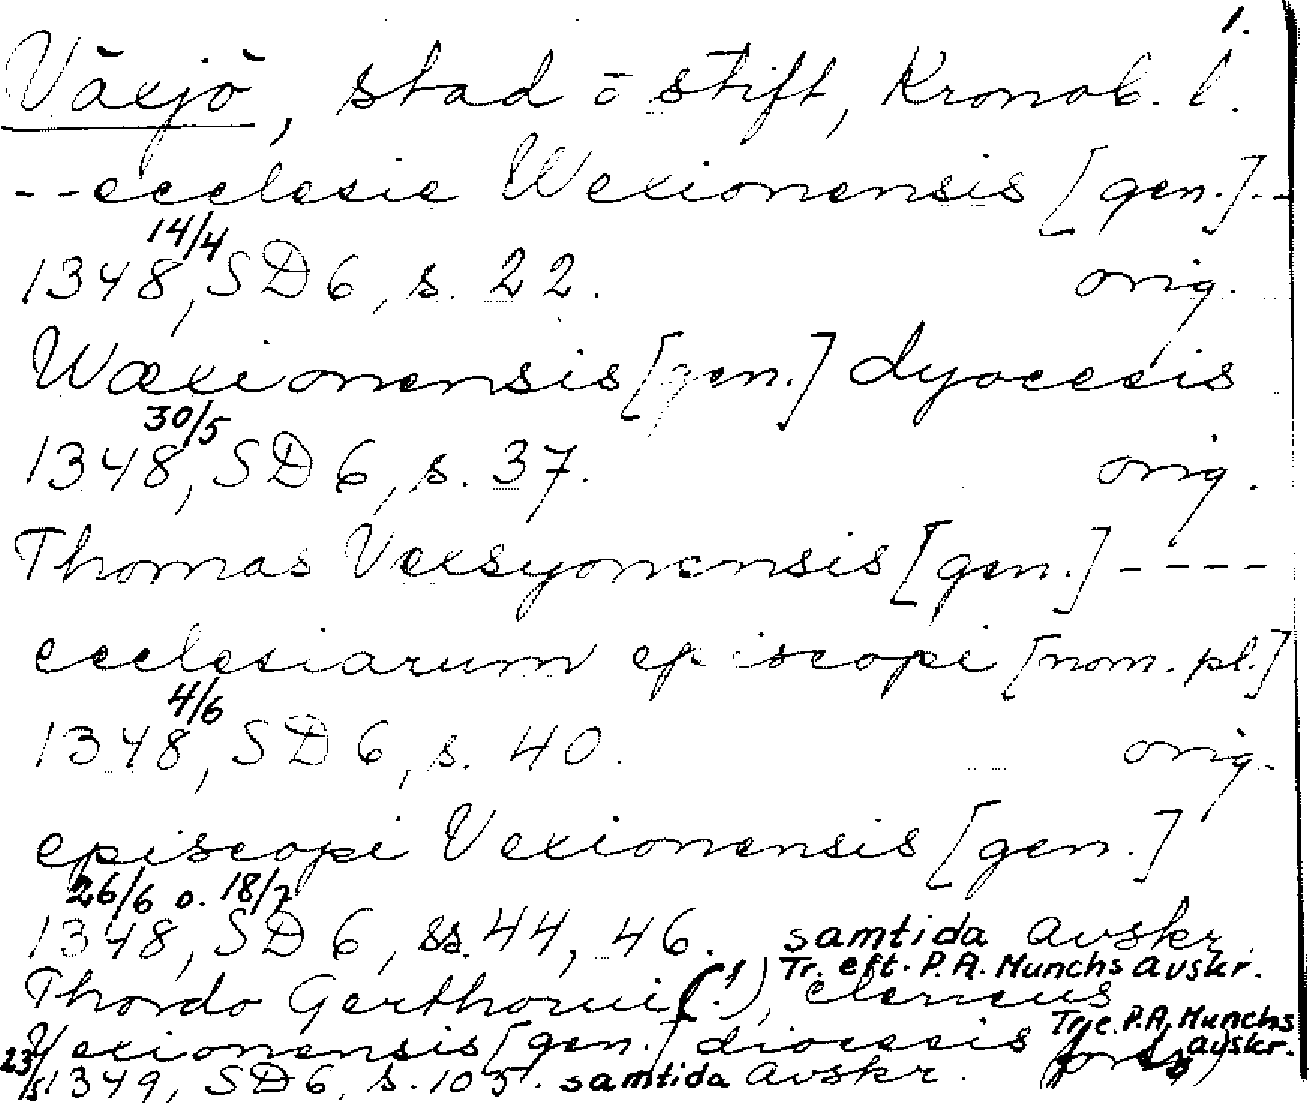 1.
Växjö, stad o stift, Kronob. l.
--ecclesie Wexionensis [gen.]--
14/4
1348, SD 6, s. 22. orig.
Wæxionensis [gen.] dyocesis
30/5
1348, SD 6, s. 37. orig.
Thomas Vexsyonensis [gen.] ----
ecclesiarum episcopi [nom. pl.]
4/6
1348, SD 6, s. 40. orig.
episcopi Vexionensis [gen.]
26/6 o. 18/7
1348, SD 6, ss. 44, 46. samtida avskr.
Tr. eft. P.A. Munchs avskr.
Thordo Gerthorui (!), clericus
Vexionensis [gen.] diocesis Tr. e. P.A. Munchs avskr.
23/5 1349, SD 6, s. 105. samtida avskr.